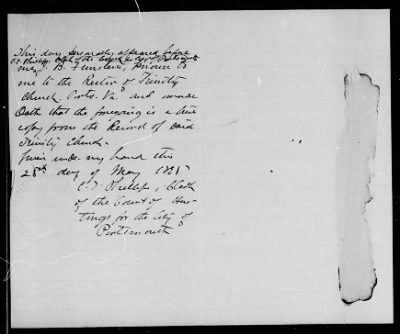 This day personally appeared before
me, B. Funsten, known to
me to be the Rector of Trinity
Church, Ports. Va. and made
Oath that the foregoing is a true
copy from the Record of said
Trinity Church.
Given under my hand this
28th day of May
C. T. Phillips, Clerk
of the Court of Hus-
tings for the City of
Portsmouth